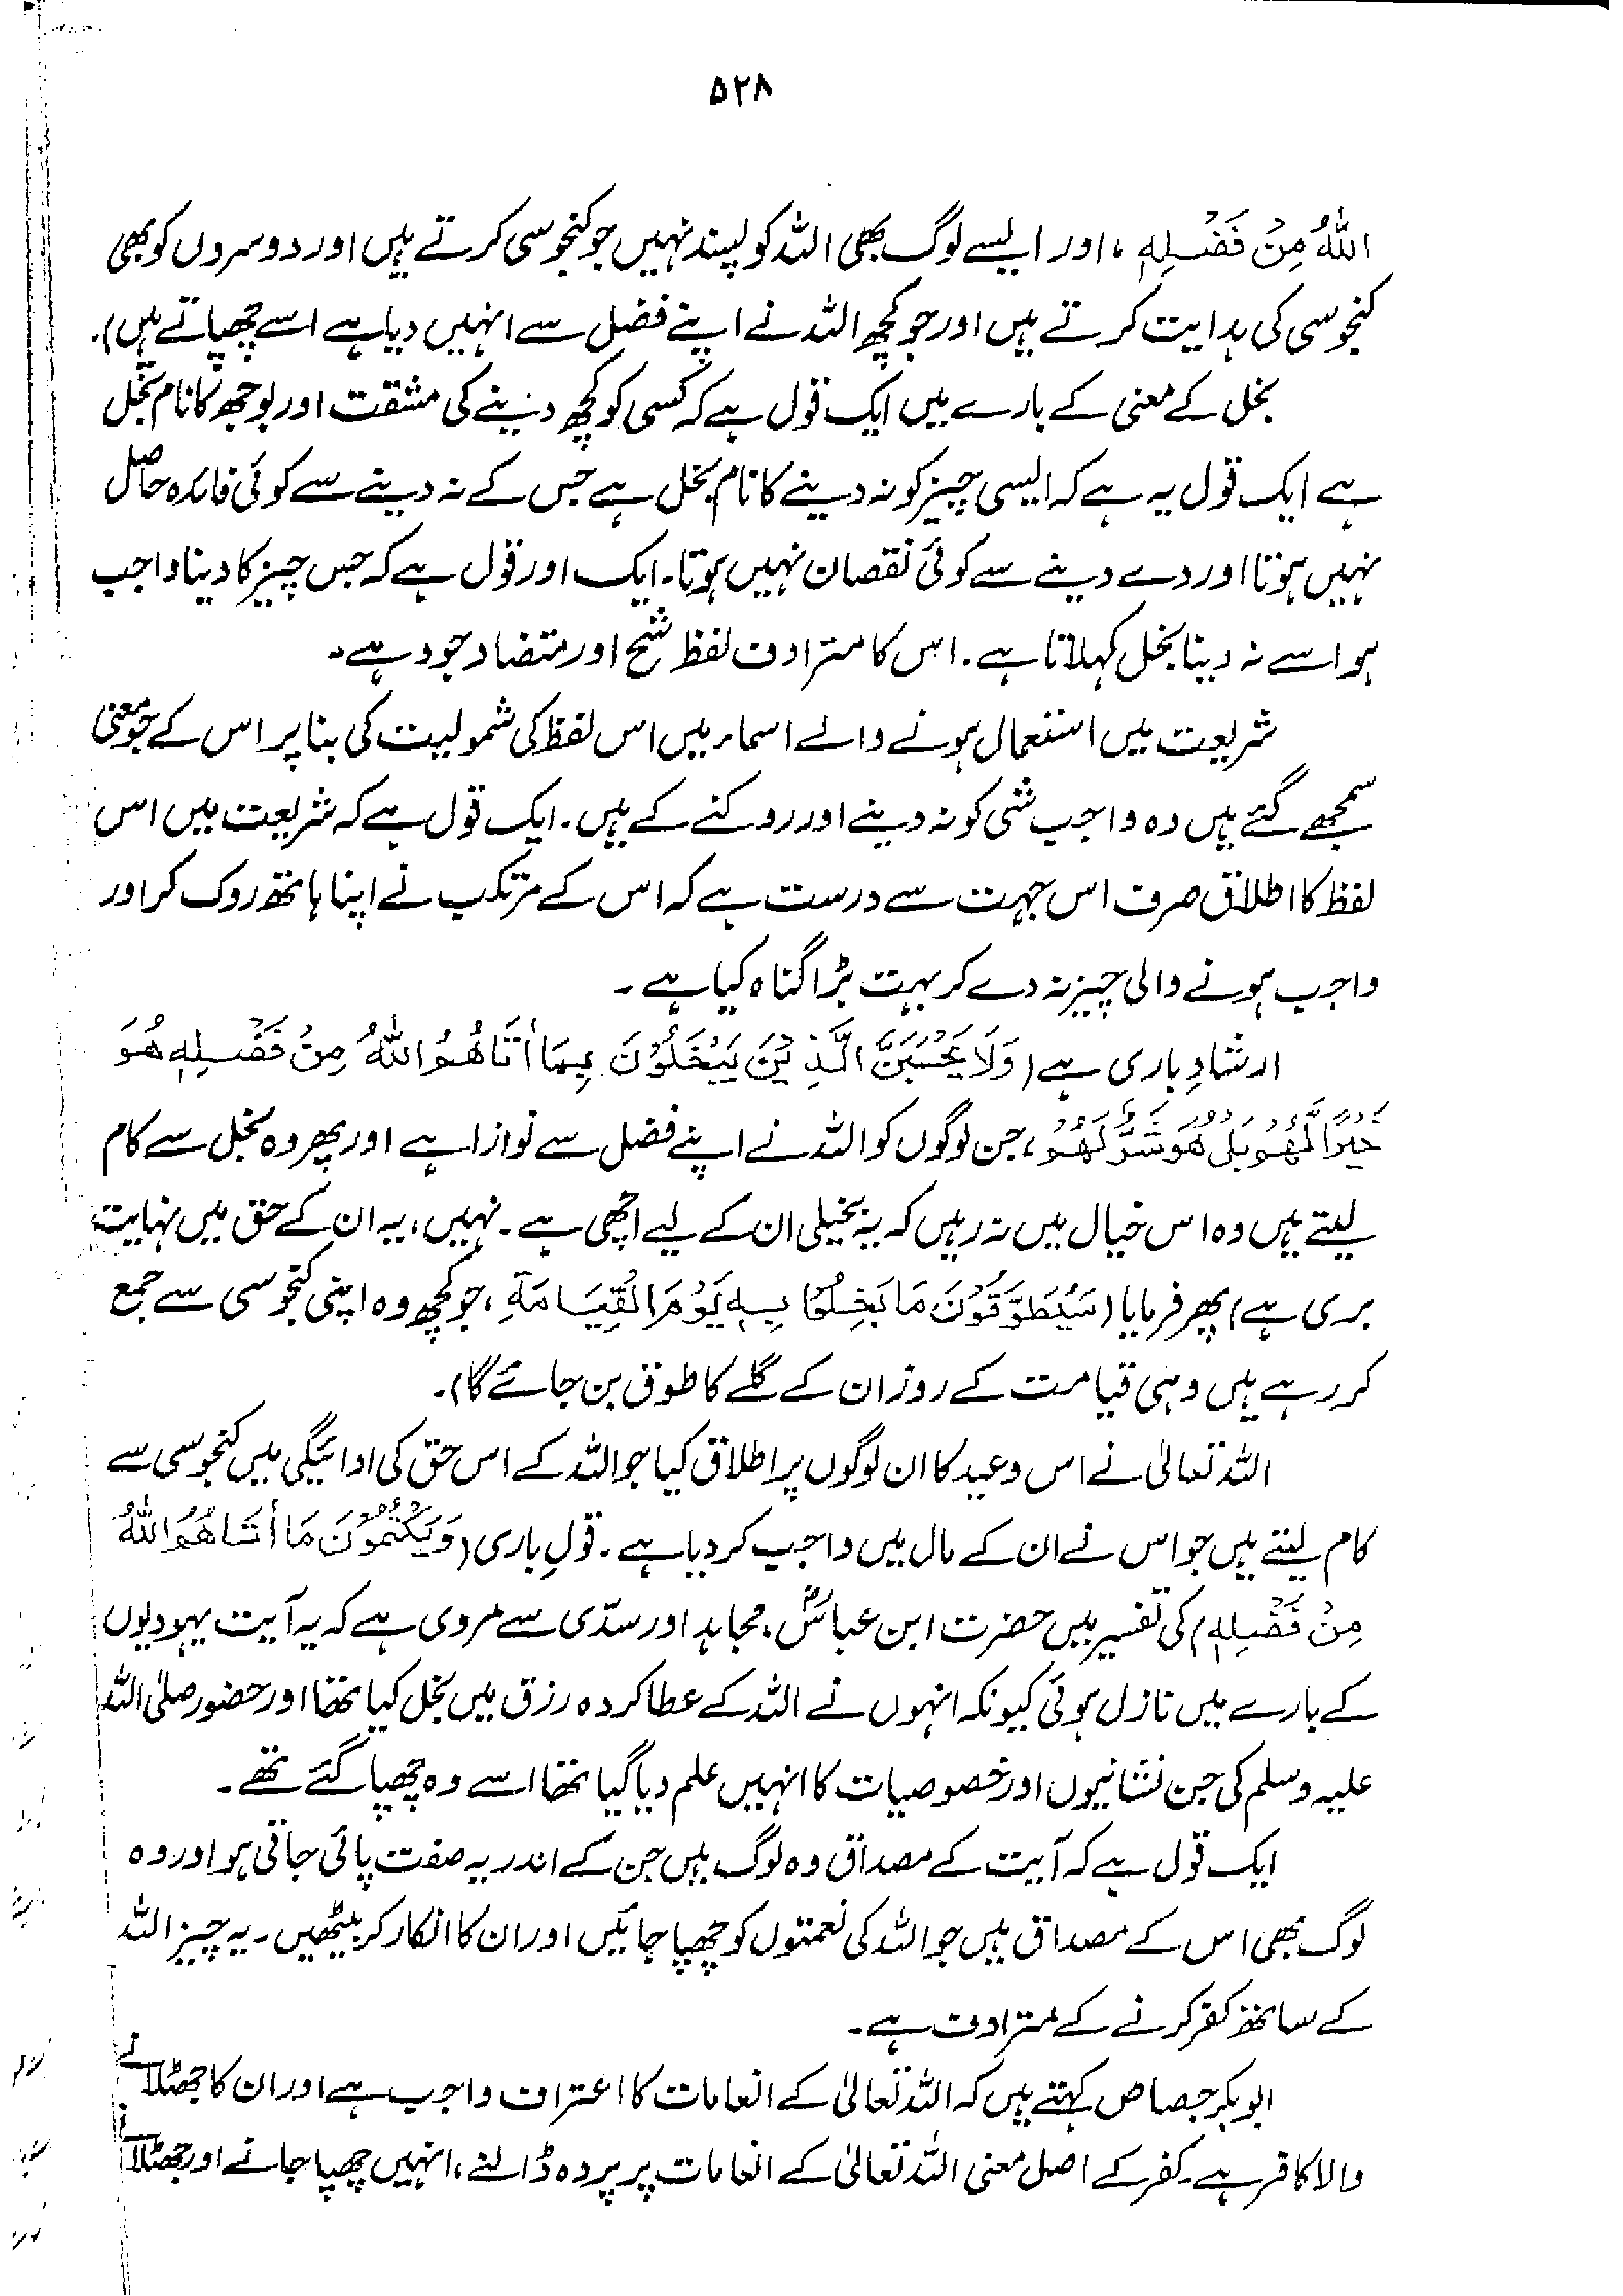 ۵۲۸
اللّٰهُ مِنْ فَضْلِهٖ ، اور ایسے لوگ بھی اللہ کو پسند نہیں جو کنجوسی کرتے ہیں اور دوسروں کو بھی
کنجوسی کی ہدایت کرتے ہیں اور جو کچھ اللہ نے اپنے فضل سے انہیں دیا ہے اسے چھپاتے ہیں)۔
بخل کے معنی کے بارے میں ایک قول ہے کہ کسی کو کچھ دینے کی مشقت اور بوجھ کا نام بخل
ہے ایک قول یہ ہے کہ ایسی چیز کو نہ دینے کا نام بخل ہے جس کے نہ دینے سے کوئی فائدہ حاصل
نہیں ہوتا اور دے دینے سے کوئی نقصان نہیں ہوتا۔ ایک اور قول ہے کہ جس چیز کا دینا واجب
ہو اسے نہ دینا بخل کہلاتا ہے۔ اس کا مترادف لفظ شح اور متضاد جود ہے۔
شریعت میں استعمال ہونے والے اسماء میں اس لفظ کی شمولیت کی بنا پر اس کے جو معنی
سمجھے گئے ہیں وہ واجب شئی کو نہ دینے اور روکنے کے ہیں۔ ایک قول ہے کہ شریعت میں اس
لفظ کا اطلاق صرف اس جہت سے درست ہے کہ اس کے مرتکب نے اپنا ہاتھ روک کر اور
واجب ہونے والی چیز نہ دے کر بہت بڑا گناہ کیا ہے۔
ارشادِ باری ہے (وَلَا يَحْسَبَنَّ الَّذِيْنَ يَبْخَلُوْنَ بِمَا أٰتَاهُمُ اللّٰهُ مِنْ فَضْلِهٖ هُوَ
خَيْرًا لَّهُمْ بَلْ هُوَ شَرٌّ لَهُمْ ، جن لوگوں کو اللہ نے اپنے فضل سے نوازا ہے اور پھر وہ بخل سے کام
لیتے ہیں وہ اس خیال میں نہ رہیں کہ یہ بخیلی ان کے لیے اچھی ہے۔ نہیں، یہ ان کے حق میں نہایت
بری ہے) پھر فرمایا (سَيُطَوَّقُوْنَ مَا بَخِلُوْا بِهٖ يَوْمَ الْقِيَامَةِ ، جو کچھ وہ اپنی کنجوسی سے جمع
کر رہے ہیں وہی قیامت کے روز ان کے گلے کا طوق بن جائے گا)۔
اللہ تعالیٰ نے اس وعید کا ان لوگوں پر اطلاق کیا جو اللہ کے اس حق کی ادائیگی میں کنجوسی سے
کام لیتے ہیں جو اس نے ان کے مال میں واجب کر دیا ہے۔ قولِ باری (وَيَكْتُمُوْنَ مَا أٰتَاهُمُ اللّٰهُ
مِنْ فَضْلِهٖ) کی تفسیر میں حضرت ابن عباسؓ، مجاہد اور سدّی سے مروی ہے کہ یہ آیت یہودیوں
کے بارے میں نازل ہوئی کیونکہ انہوں نے اللہ کے عطا کردہ رزق میں بخل کیا تھا اور حضور صلی اللہ
علیہ وسلم کی جن نشانیوں اور خصوصیات کا انہیں علم دیا گیا تھا اسے وہ چھپا گئے تھے۔
ایک قول ہے کہ آیت کے مصداق وہ لوگ ہیں جن کے اندر یہ صفت پائی جاتی ہو اور وہ
لوگ بھی اس کے مصداق ہیں جو اللہ کی نعمتوں کو چھپا جائیں اور ان کا انکار کر بیٹھیں۔ یہ چیز اللہ
کے ساتھ کفر کرنے کے مترادف ہے۔
ابوبکر جصاص کہتے ہیں کہ اللہ تعالیٰ کے انعامات کا اعتراف واجب ہے اور ان کا جھٹلانے
والا کافر ہے۔ کفر کے اصل معنی اللہ تعالیٰ کے انعامات پر پردہ ڈالنے، انہیں چھپا جانے اور جھٹلانے